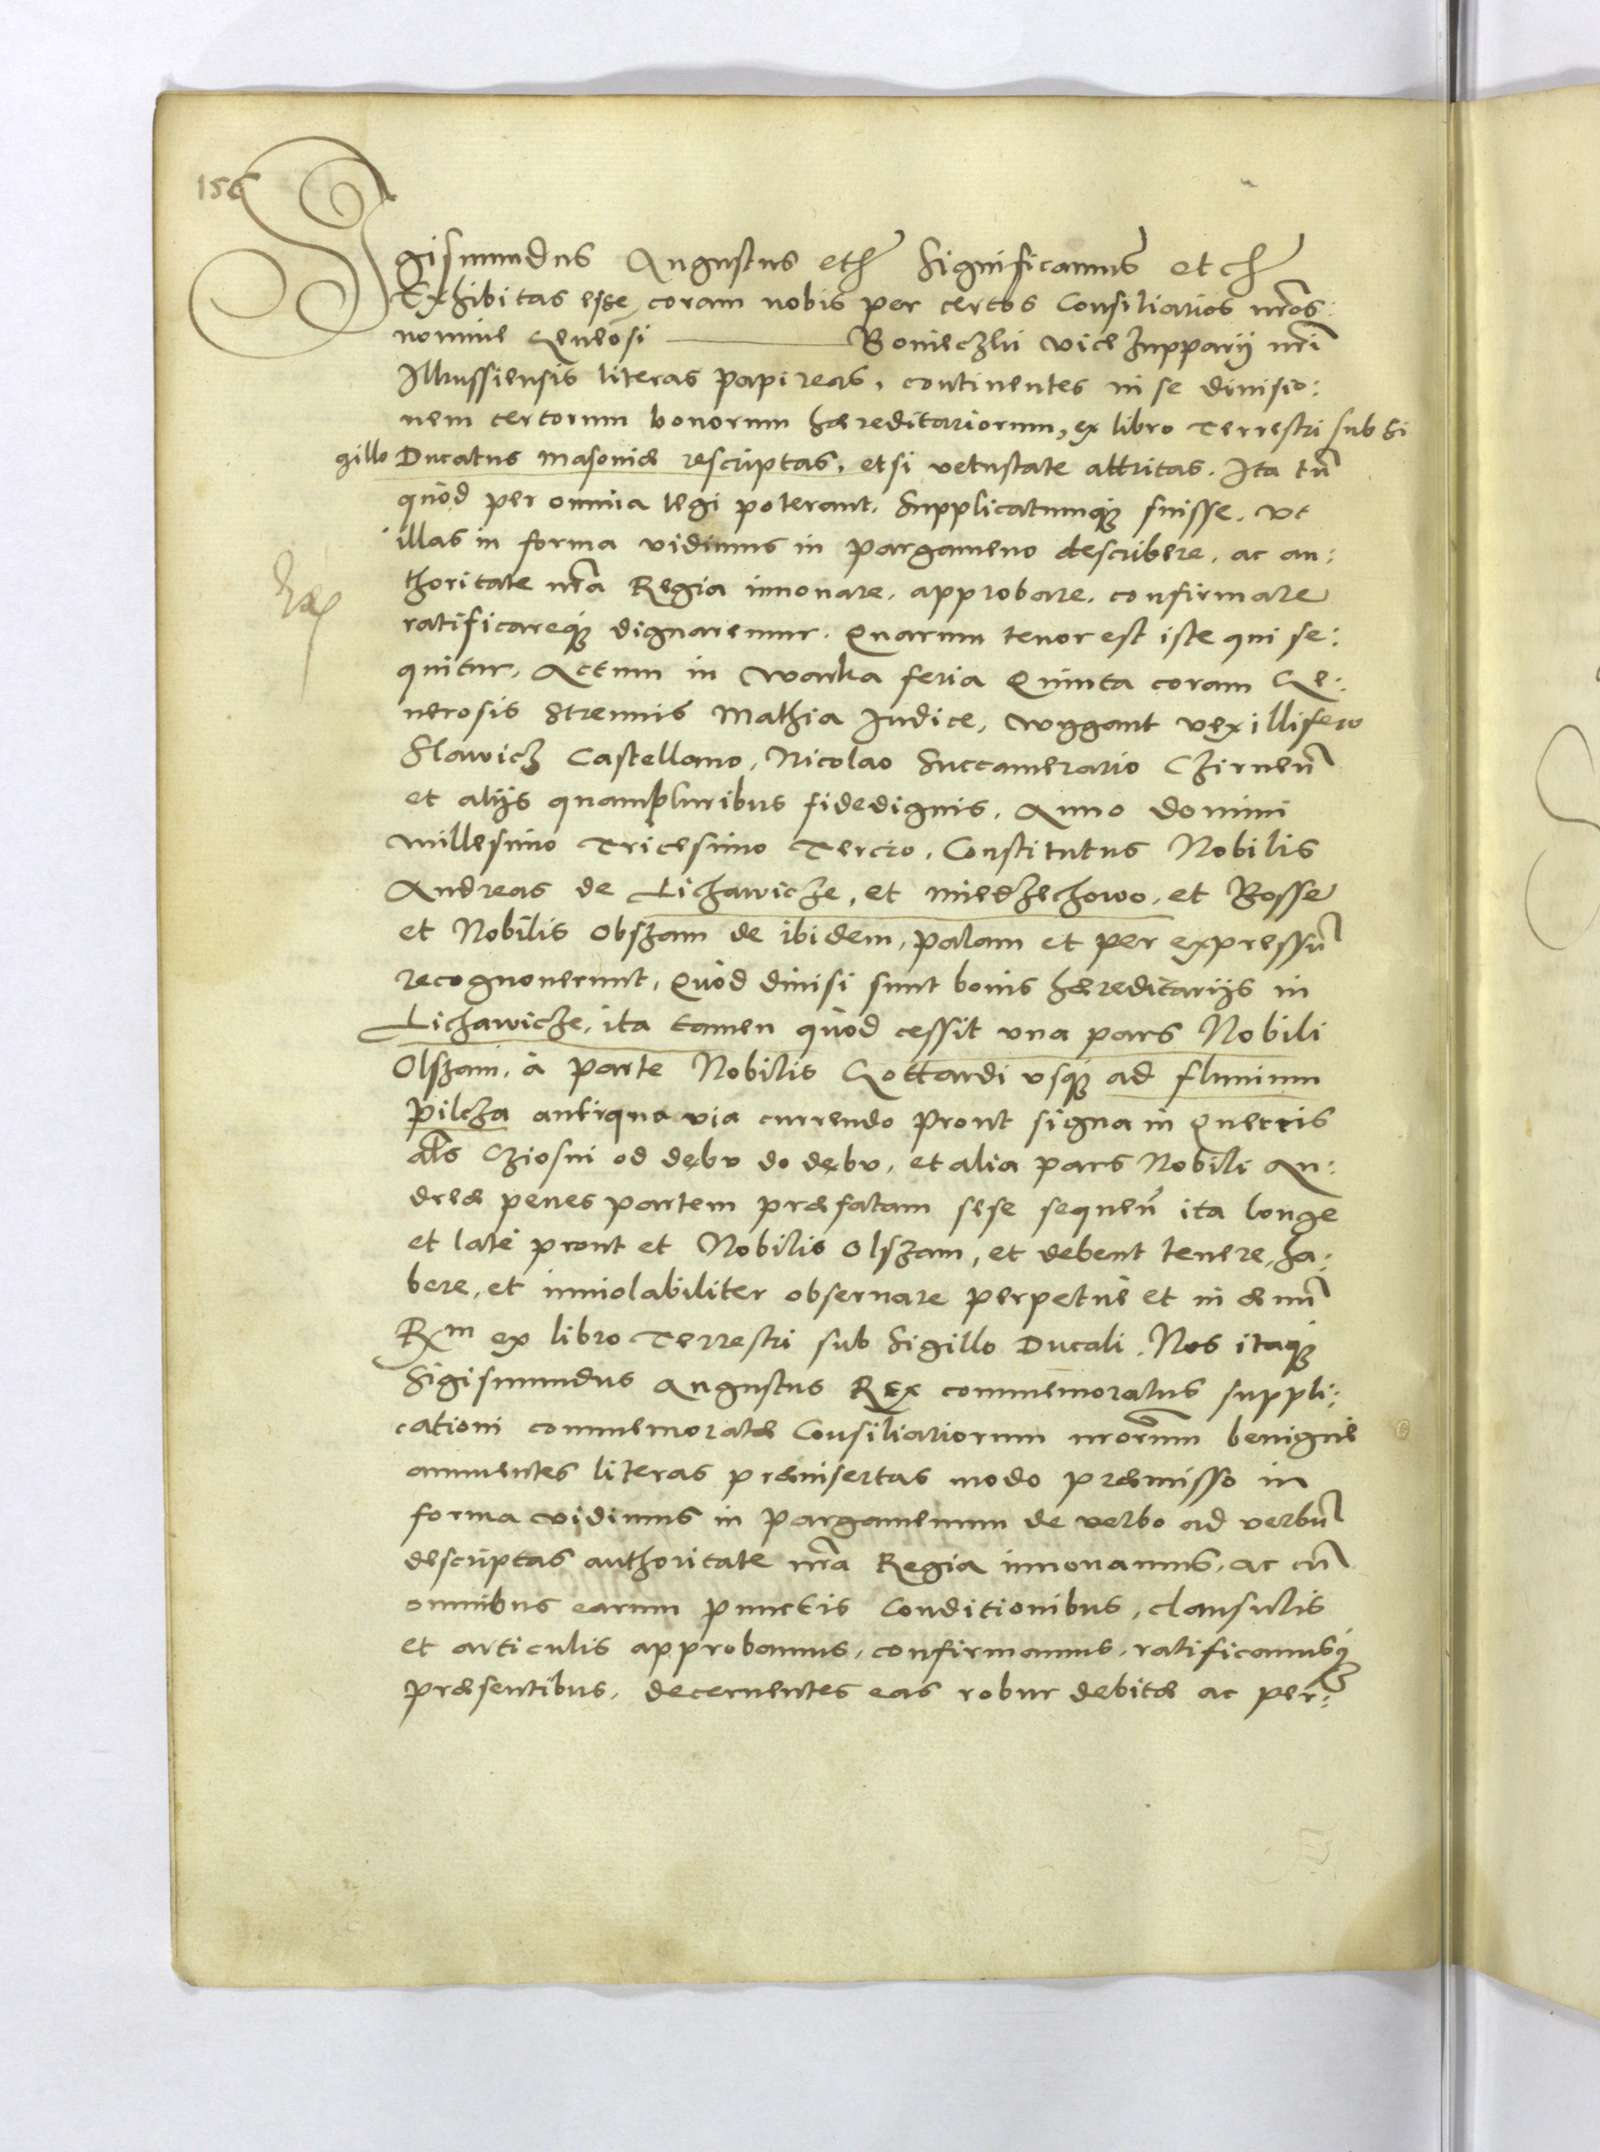 156
Sigismundus Augustus etc̃ Significamus et cæ̃
Exhibitas esse coram nobis per certos Consiliarios nr̃os:
nomine Geneosi ——— Bonieczkii vice Zupparij nr̃i
Ilkussiensis literas papireas, continentes in se diuisio:
nem certorum bonorum hæreditariorum, ex libro Terrestri sub Si
gillo Ducatus Masoviæ rescriptas, etsi vetustate attritas. Ita tñ
quòd per omnia legi poterant. Supplicatumq; fuisse, vt
illas in forma vidimus in pargameno describere, ac au:
thoritate nr̃a Regia innouare, approbare, confirmare
ratificareq; dignaremur. Quarum tenor est iste qui se:
quitur. Actum in Warka feria Quinta coram Ge:
nerosis Strenuis Mathia Iudice, Wygant vexillifero
Slawicz Castellano, Nicolao Succamerario Czirneñ
et alijs quampluribus fidedignis. Anno domini
Millesimo Tricesimo Tercio. Constitutus Nobilis
Andreas de Lichawicze, et Miedzechowo, et Bosse
et Nobilis Olszam de ibidem, palam et per expressũ
recognouerunt, Quòd diuisi sunt bonis hæreditarijs in
Lichawicze, ita tamen quòd cessit vna pars Nobili
Olszam, à parte Nobilis Gottardi vsq; ad fluuium
Pilcza antiqua via currendo prout signa in Quercis
al̃s Cziosni od dębv do dębv, et alia pars Nobili An:
dreæ penes partem præfatam sese sequeñ ita longe
et latè prout et Nobilis Olszam, et debent tenere, ha:
bere, et inuiolabiliter obseruare perpetuè et in æuũ
Rx̃m ex libro Terrestri sub Sigillo Ducali. Nos itaq;
Sigismundus Augustus Rex commemoratus suppli:
cationi commemoratæ Consiliariorum nr̃orum benignè
annuentes literas præinsertas modo præmisso in
forma vidimus in pargamenum de verbo ad verbũ
descriptas authoritate nr̃a Regia innouamus, ac cũ
omnibus earum punctis Conditionibus, clausulis
et articulis approbamus, confirmamus, ratificamusq;
præsentibus, decernentes eas robur debitæ ac per: